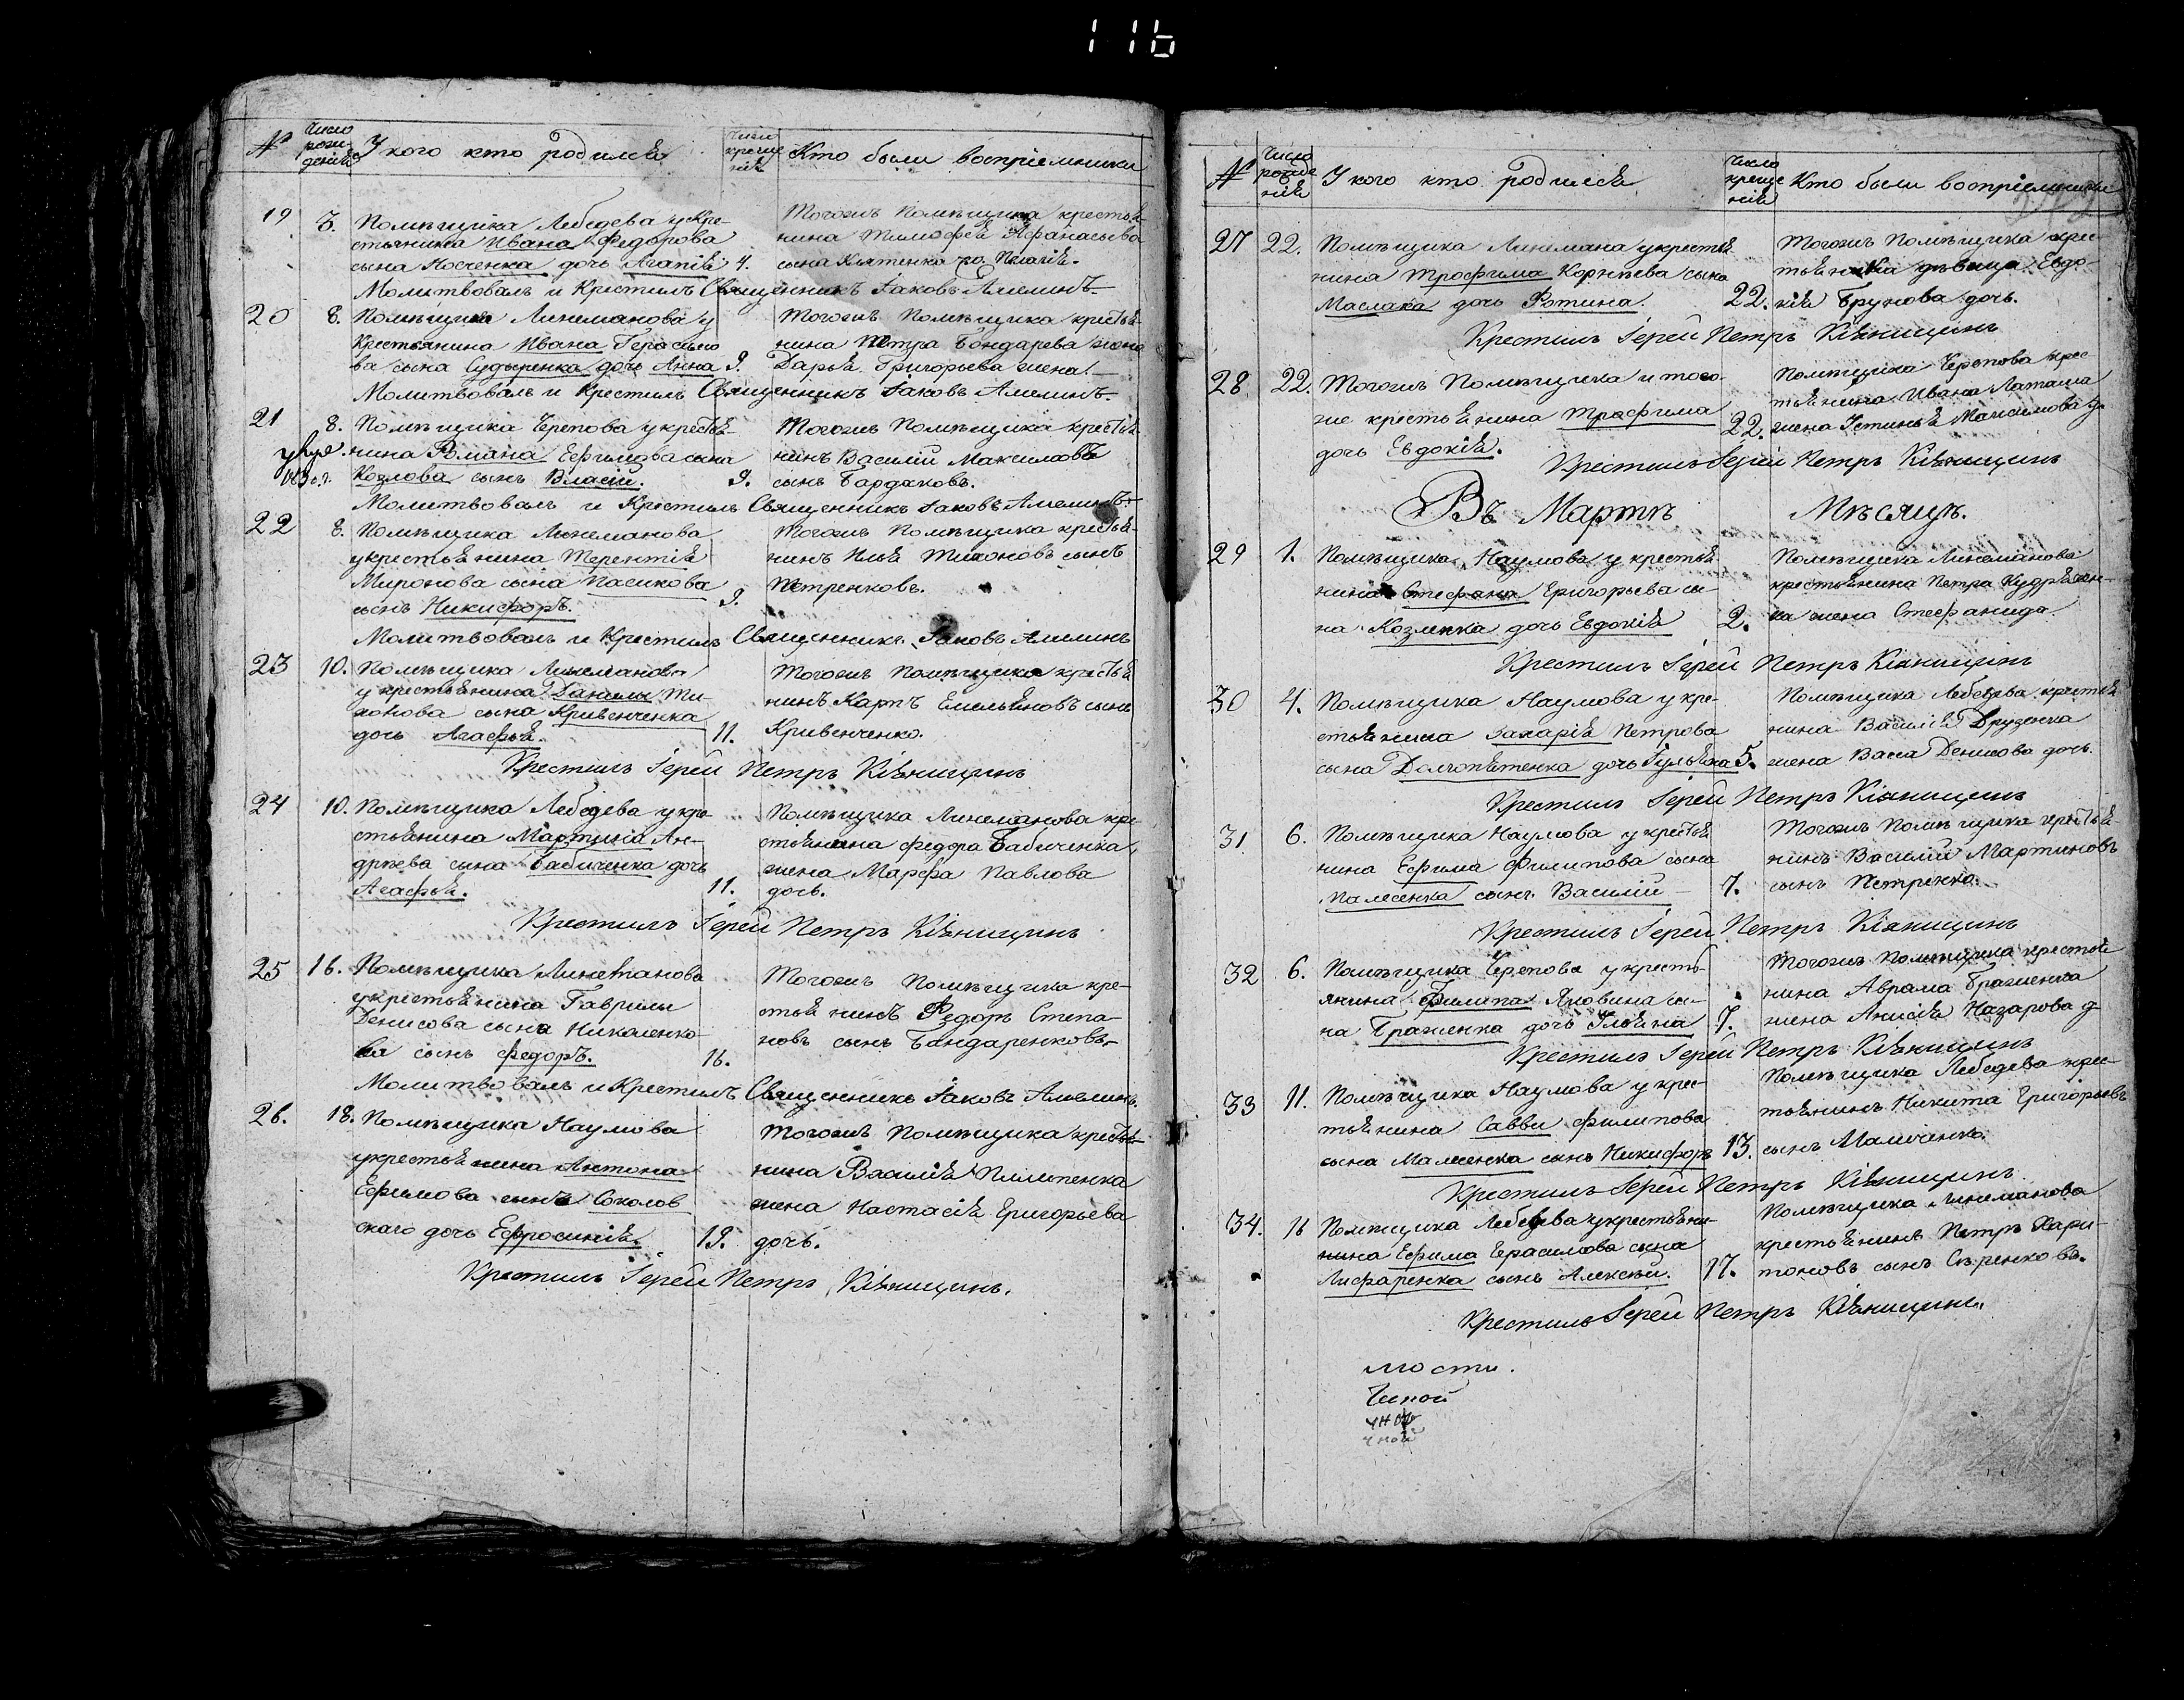 116
№ Число рожденія У кого кто родился Число крещенія Кто были воспріемники
19. 3. Помѣщика Лебедева у кре-
стьянина Ивана Федорова
сына Носченка дочь Агапія 4.
Тогожъ Помѣщика крестья-
нина Тимофея Афанасьева
сына жо. Пелагія.
Молитвовалъ и Крестилъ Священникъ Іаковъ Амелинъ
20 8. Помѣщика Линеманова у
Крестьянина Ивана Герасимо
ва сына дочь Анна 9.
Тогожъ Помѣщика крестья-
нина Петра Бондарева жена
Дарья Григорьева жена.
Молитвовалъ и Крестилъ Священникъ Іаковъ Амелинъ
21 8. Помѣщика Черепова у крестья-
нина Романа Ефимова сына
Козлова сынъ Власій. 9.
Тогожъ Помѣщика крестья-
нинъ Василій Максимовъ
сынъ Бардаковъ.
Молитвовалъ и Крестилъ Священникъ Іаковъ Амелинъ
22 8. Помѣщика Линеманова
у крестьянина Терентія
Миронова сына Пасикова
сынъ Никифоръ. 9.
Тогожъ Помѣщика крестья-
нинъ Илья Тихоновъ сынъ
Петренковъ.
Молитвовалъ и Крестилъ Священникъ Іаковъ Амелинъ
23 10. Помѣщика Линеманова
у крестьянина Данилы Ти-
хонова сына Кривенченка
дочь Агафья. 11.
Тогожъ Помѣщика крестья
нинъ Карпъ Емельяновъ сынъ
Кривенченко.
Крестилъ Іерей Петръ Кіяницинъ
24 10. Помѣщика Лебедева у кре-
стьянина Мартина Ан-
дрѣева сына Бабиченка дочь
Агафья. 11.
Помѣщика Линеманова кре
стьянина Федора Бабиченка,
жена Марфа Павлова
дочь.
Крестилъ Іерей Петръ Кіяницинъ
25 16. Помѣщика Линеманова
у крестьянина Гаврилы
Денисова сына Николенко-
ва сынъ Федоръ. 16.
Тогожъ Помѣщика кре-
стьянинъ Федоръ Степа-
новъ сынъ Бандаренковъ.
Молитвовалъ и Крестилъ Священникъ Іаковъ Амелинъ.
26. 18. Помѣщика Наумова
у крестьянина Антона
Ефимова сына Соколов
скаго дочь Ефросинія. 19.
Тогожъ Помѣщика крестья-
нина Василія Пилипенка
жена Настасія Григорьева
дочь.
Крестилъ Іерей Петръ Кіяницинъ.
№ Число рожденія У кого кто родился Число крещенія Кто были воспріемники
27 22. Помѣщика Линемана у крестья
нина Трофима Корнѣева сына
Маслака дочь Фотина. 22.
Тогожъ Помѣщика крес-
тьянка дѣвица Евдо-
кія Брунова дочь.
Крестилъ Іерей Петръ Кіяницинъ
28 22. Тогожъ Помѣщика и того-
же крестьянина Трофима
дочь Евдокія. 22.
Помѣщика Черепова крес
тьянина Ивана Латаша
жена Устинья Максимова д
Крестилъ Іерей Петръ Кіяницинъ
Въ Мартѣ Мѣсяцѣ.
29 1. Помѣщика Наумова у крестья
нина Стефана Григорьева сы-
на Козленка дочь Евдокія 2.
Помѣщика Линеманова
крестьянина Петра Кудряшен-
ка жена Стефанида.
Крестилъ Іерей Петръ Кіяницинъ
30 4. Помѣщика Наумова у кре-
стьянина Захарія Петрова
сына Долгопятенка дочь Іульяна 5.
Помѣщика Лебедева крестья
нина Василія Друзенка
жена Васа Денисова дочь.
Крестилъ Іерей Петръ Кіяницинъ
31 6. Помѣщика Наумова у крестья
нина Ефима Филипова сына
сынъ Василій 7.
Тогожъ Помѣщика крестья-
нинъ Василій Мартиновъ
сынъ Петренко.
Крестилъ Іерей Петръ Кіяницинъ
32 6. Помѣщика Черепова у кресть-
янина Филипа Яковина сы-
на Браженка дочь Ульяна 7.
Тогожъ Помѣщика крестья
нина Аврама Браженка
жена Анисія Назарова д
Крестилъ Іерей Петръ Кіяницинъ
33 11. Помѣщика Наумова у крес-
тьянина Саввы Филипова
сына сынъ Никифоръ 13.
Помѣщика Лебедева крес-
тьянинъ Никита Григорьевъ
сынъ
Крестилъ Іерей Петръ Кіяницинъ.
34. 16 Помѣщика Лебедева у крестьяни-
нина Ефима Герасимова сына
Лисфаренка сынъ Алексѣй. 17.
Помѣщика Линеманова
крестьянинъ Петръ Хари-
тоновъ сынъ Сѣренковъ.
Крестилъ Іерей Петръ Кіяницинъ.
мости.